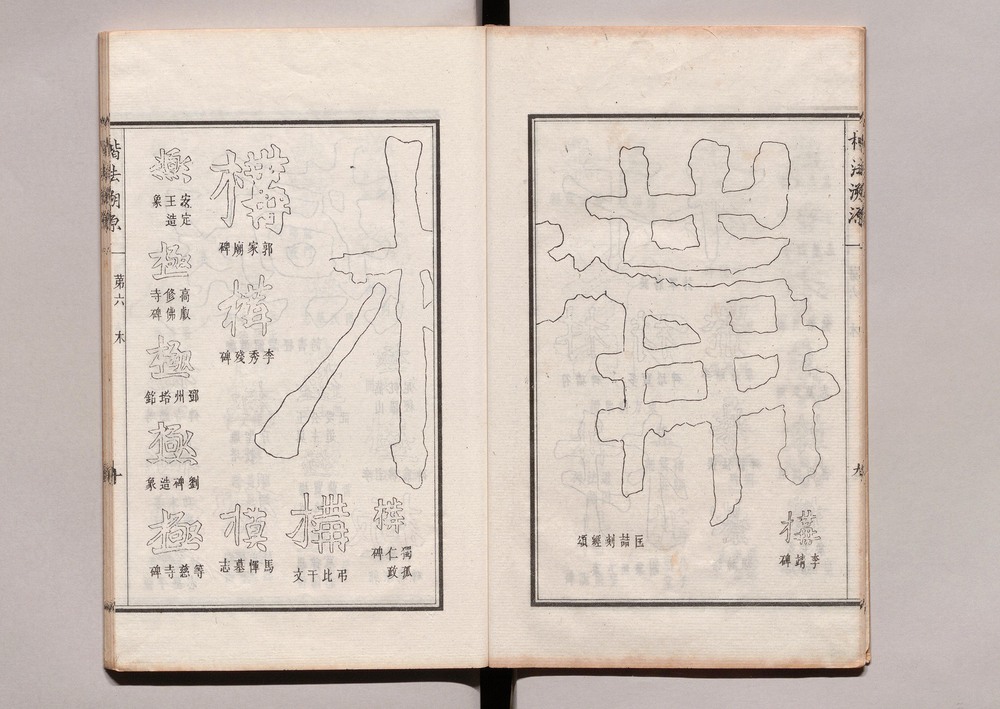 楷法溯源
九
構
李靖碑
匡喆刻經頌
構
獨孤仁政碑
構
弔比干文
構
郭家廟碑
構
李秀殘碑
模
馬惲墓志
極
安定王造象
極
高叡修佛寺碑
極
鄧州塔銘
極
劉碑造象
極
等慈寺碑
楷法溯源
第六
木
十